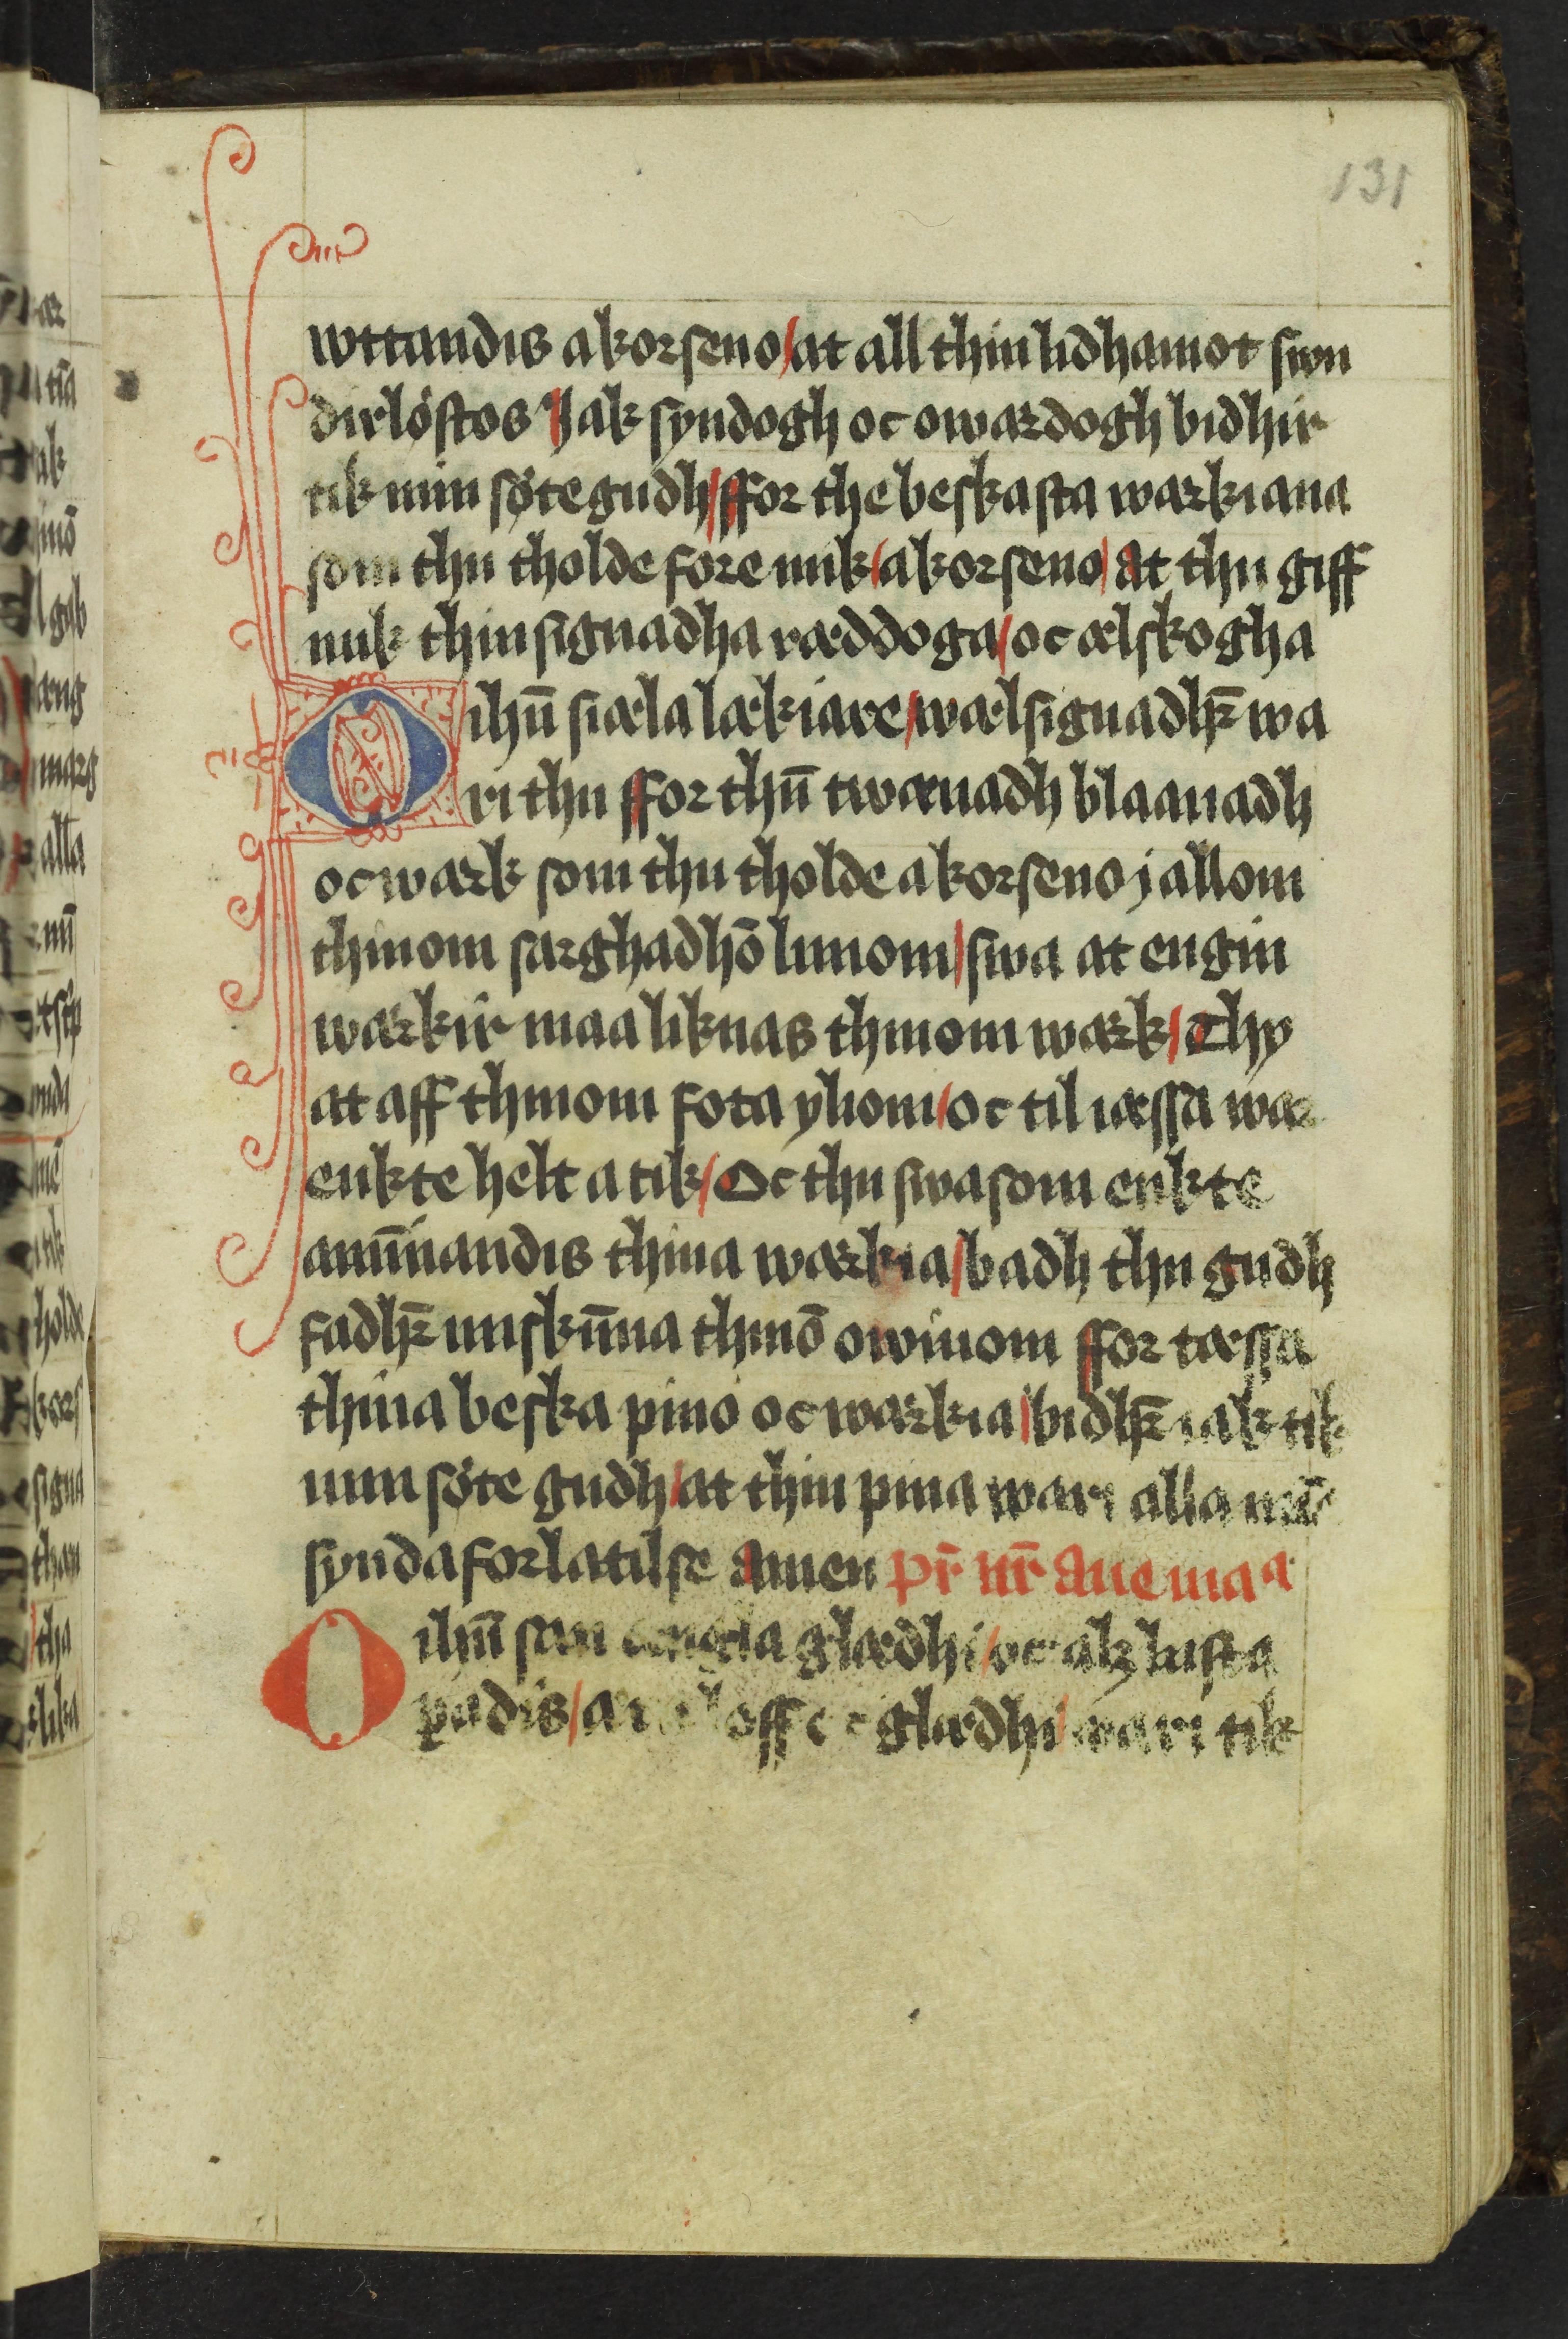 131
wttandis a korseno / at all thin lidhamot swn
dirlöstos Jak syndogh oc owærdogh bidhir
tik min söte gudh / ffor the beskasta wærkiana
som thu tholde fore mik / a korseno / At thu giff
mik thin signadha ræddoga / oc ælskogha
O ihū siæla lækiare / wælsignadhr̄ wa
ri thu ffor thn̄ twænadh blaanadh
oc wærk som thu tholde a korseno j allom
thinom sarghadhō limom / swa at engin
wærkir maa liknas thinom wærk / Thy
at aff thinom fota yliom / oc til iæssa war
enkte helt a tik / Oc thu swa som enkte
aminnandis thina wærkia / badh thu gudh
fadhr̄ miskūna thinō owinom ffor tæssa
thina beska pino oc wærkia / bidhr̄ iak tik
min söte gudh / at thin pina wari alla mī̄
synda forlatilse Amen pr̄ nr̄ Aue ma a
O ihū san ængla glædhi / oc alz lusta
padis / loff oc glædhi wari tik